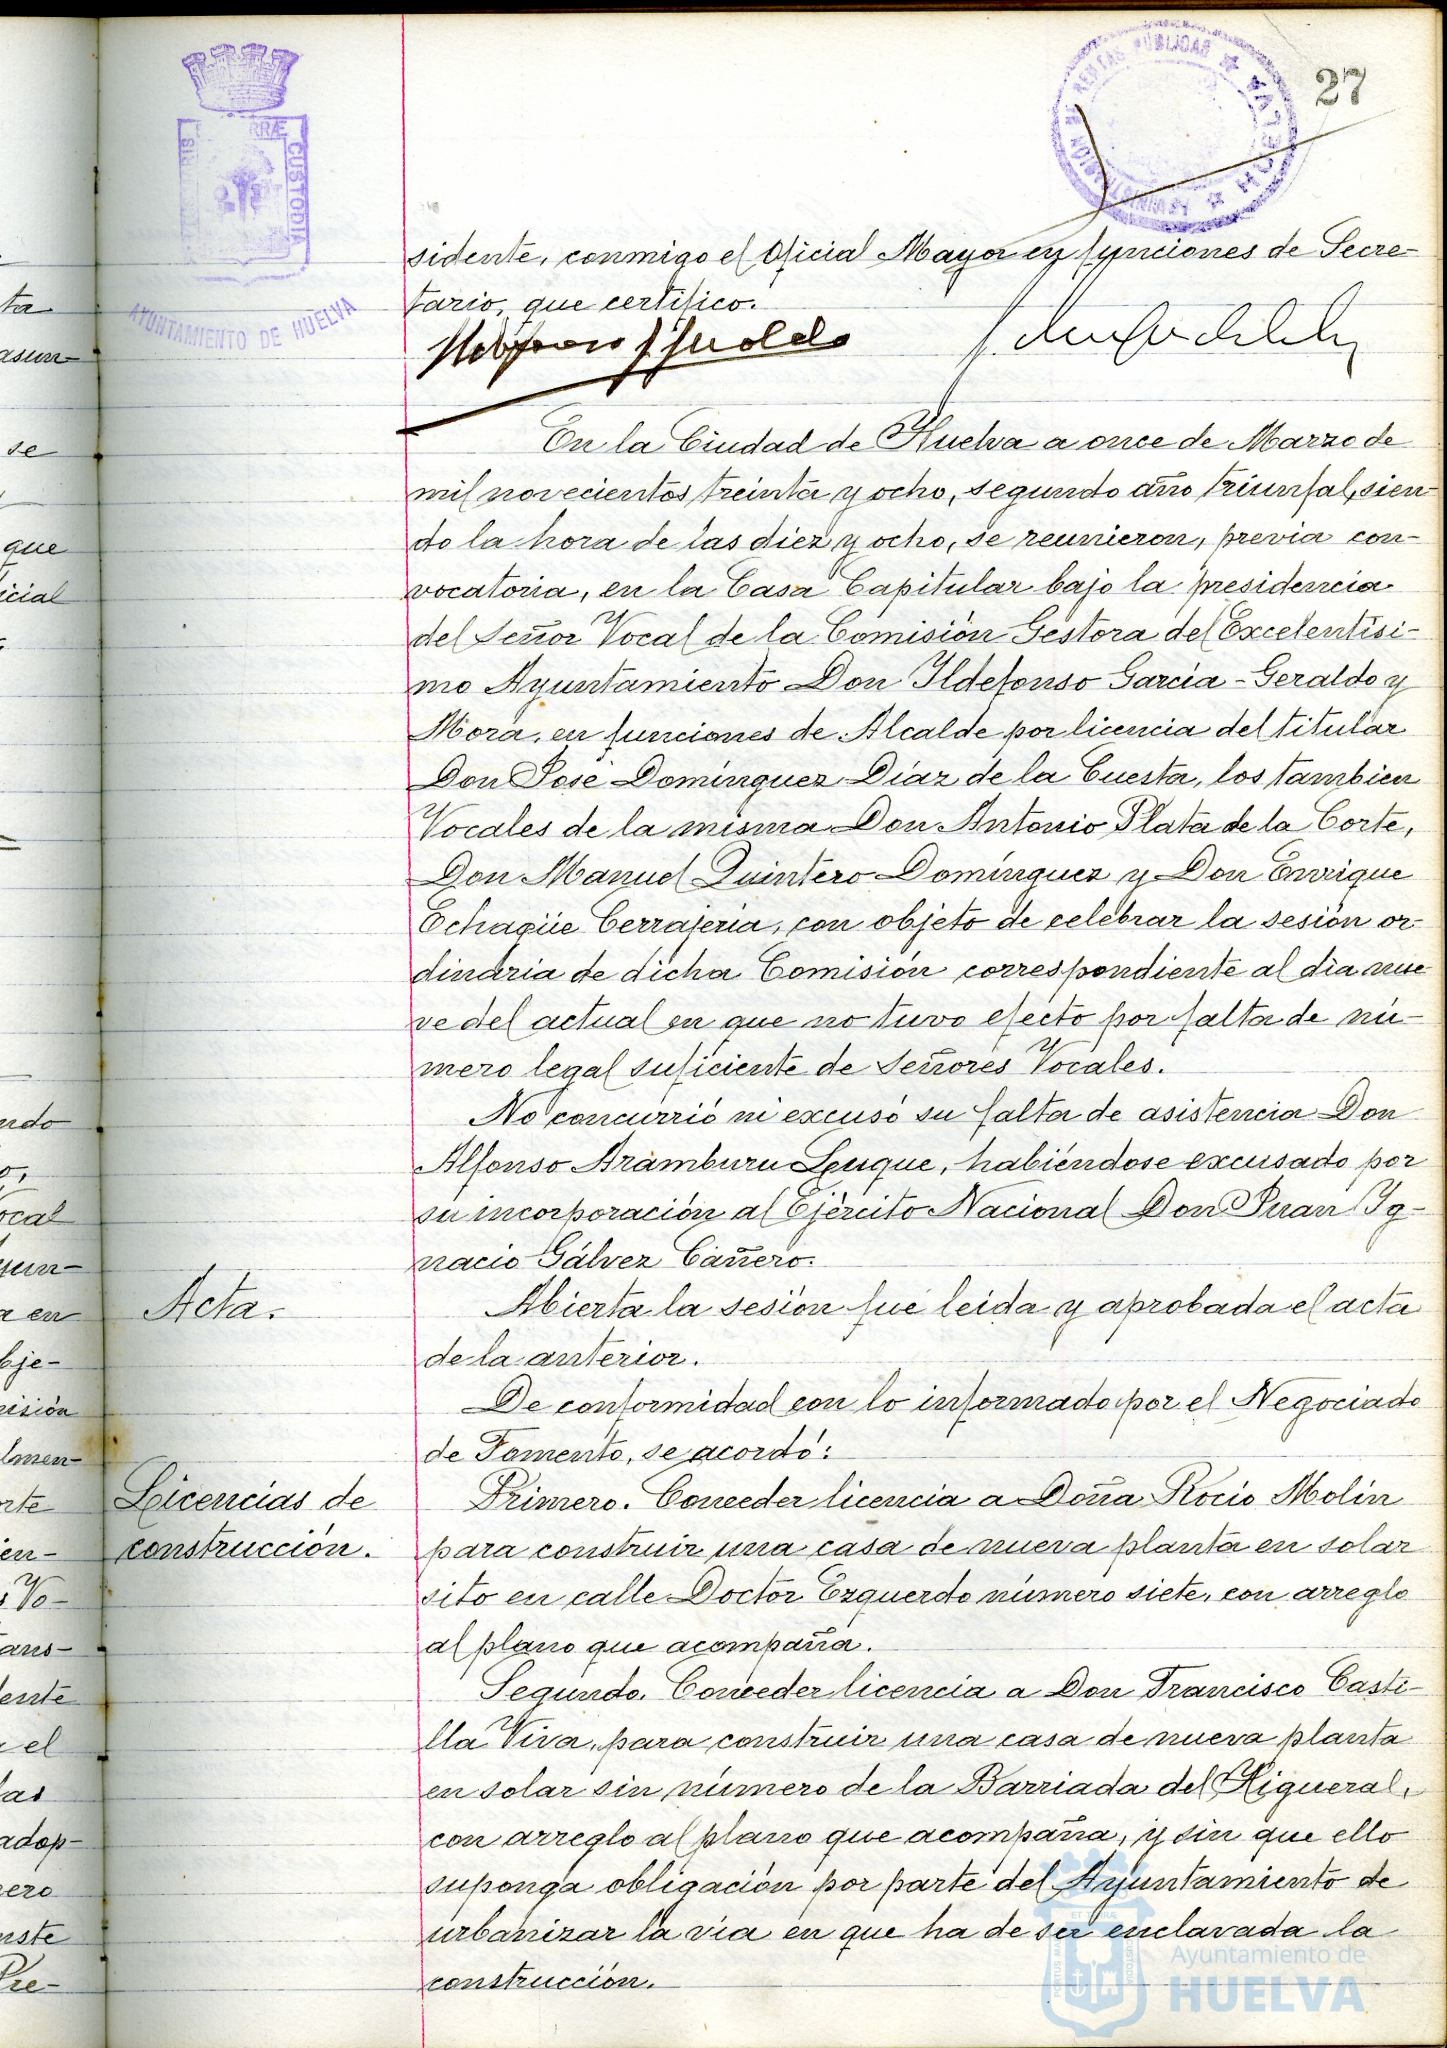 27
ADMINISTRACIÓN DE RENTAS PÚBLICAS ★ HUELVA ★
CUSTODIA
AYUNTAMIENTO DE HUELVA
sidente, conmigo el Oficial Mayor en funciones de Secre-
tario, que certifico.
En la Ciudad de Huelva a once de Marzo de
mil novecientos treinta y ocho, segundo año triunfal, sien-
do la hora de las diez y ocho, se reunieron, previa con-
vocatoria, en la Casa Capitular bajo la presidencia
del Señor Vocal de la Comisión Gestora del Excelentísi-
mo Ayuntamiento Don Ildefonso García-Geraldo y
Mora, en funciones de Alcalde por licencia del titular
Don José Domínguez Díaz de la Cuesta, los tambien
Vocales de la misma Don Antonio Plata de la Corte,
Don Manuel Quintero Domínguez y Don Enrique
Echagüe Cerrajería, con objeto de celebrar la sesión or-
dinaria de dicha Comisión correspondiente al día nue-
ve del actual en que no tuvo efecto por falta de nú-
mero legal suficiente de Señores Vocales.
No concurrió ni excusó su falta de asistencia Don
Alfonso Aramburu Luque, habiéndose excusado por
su incorporación al Ejército Nacional Don Juan Ig-
nacio Gálvez Cañero.
Acta.
Abierta la sesión fué leida y aprobada el acta
de la anterior.
De conformidad con lo informado por el Negociado
de Fomento, se acordó:
Licencias de
construcción.
Primero. Conceder licencia a Doña Rocío Molín
para construir una casa de nueva planta en solar
sito en calle Doctor Ezquerdo número siete, con arreglo
al plano que acompaña.
Segundo. Conceder licencia a Don Francisco Casti-
lla Viva, para construir una casa de nueva planta
en solar sin número de la Barriada del Higueral,
con arreglo al plano que acompaña, y sin que ello
suponga obligación por parte del Ayuntamiento de
urbanizar la vía en que ha de ser enclavada la
construcción.
Ayuntamiento de
HUELVA